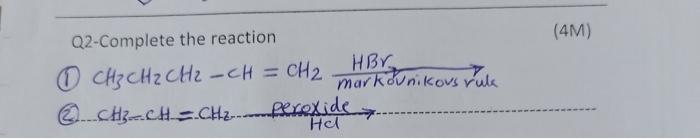 Q2-Complete the reaction (4M)
① CH3CH2CH2-CH=CH2 HBr markovnikovs rule
② CH3-CH=CH2 peroxide HCl